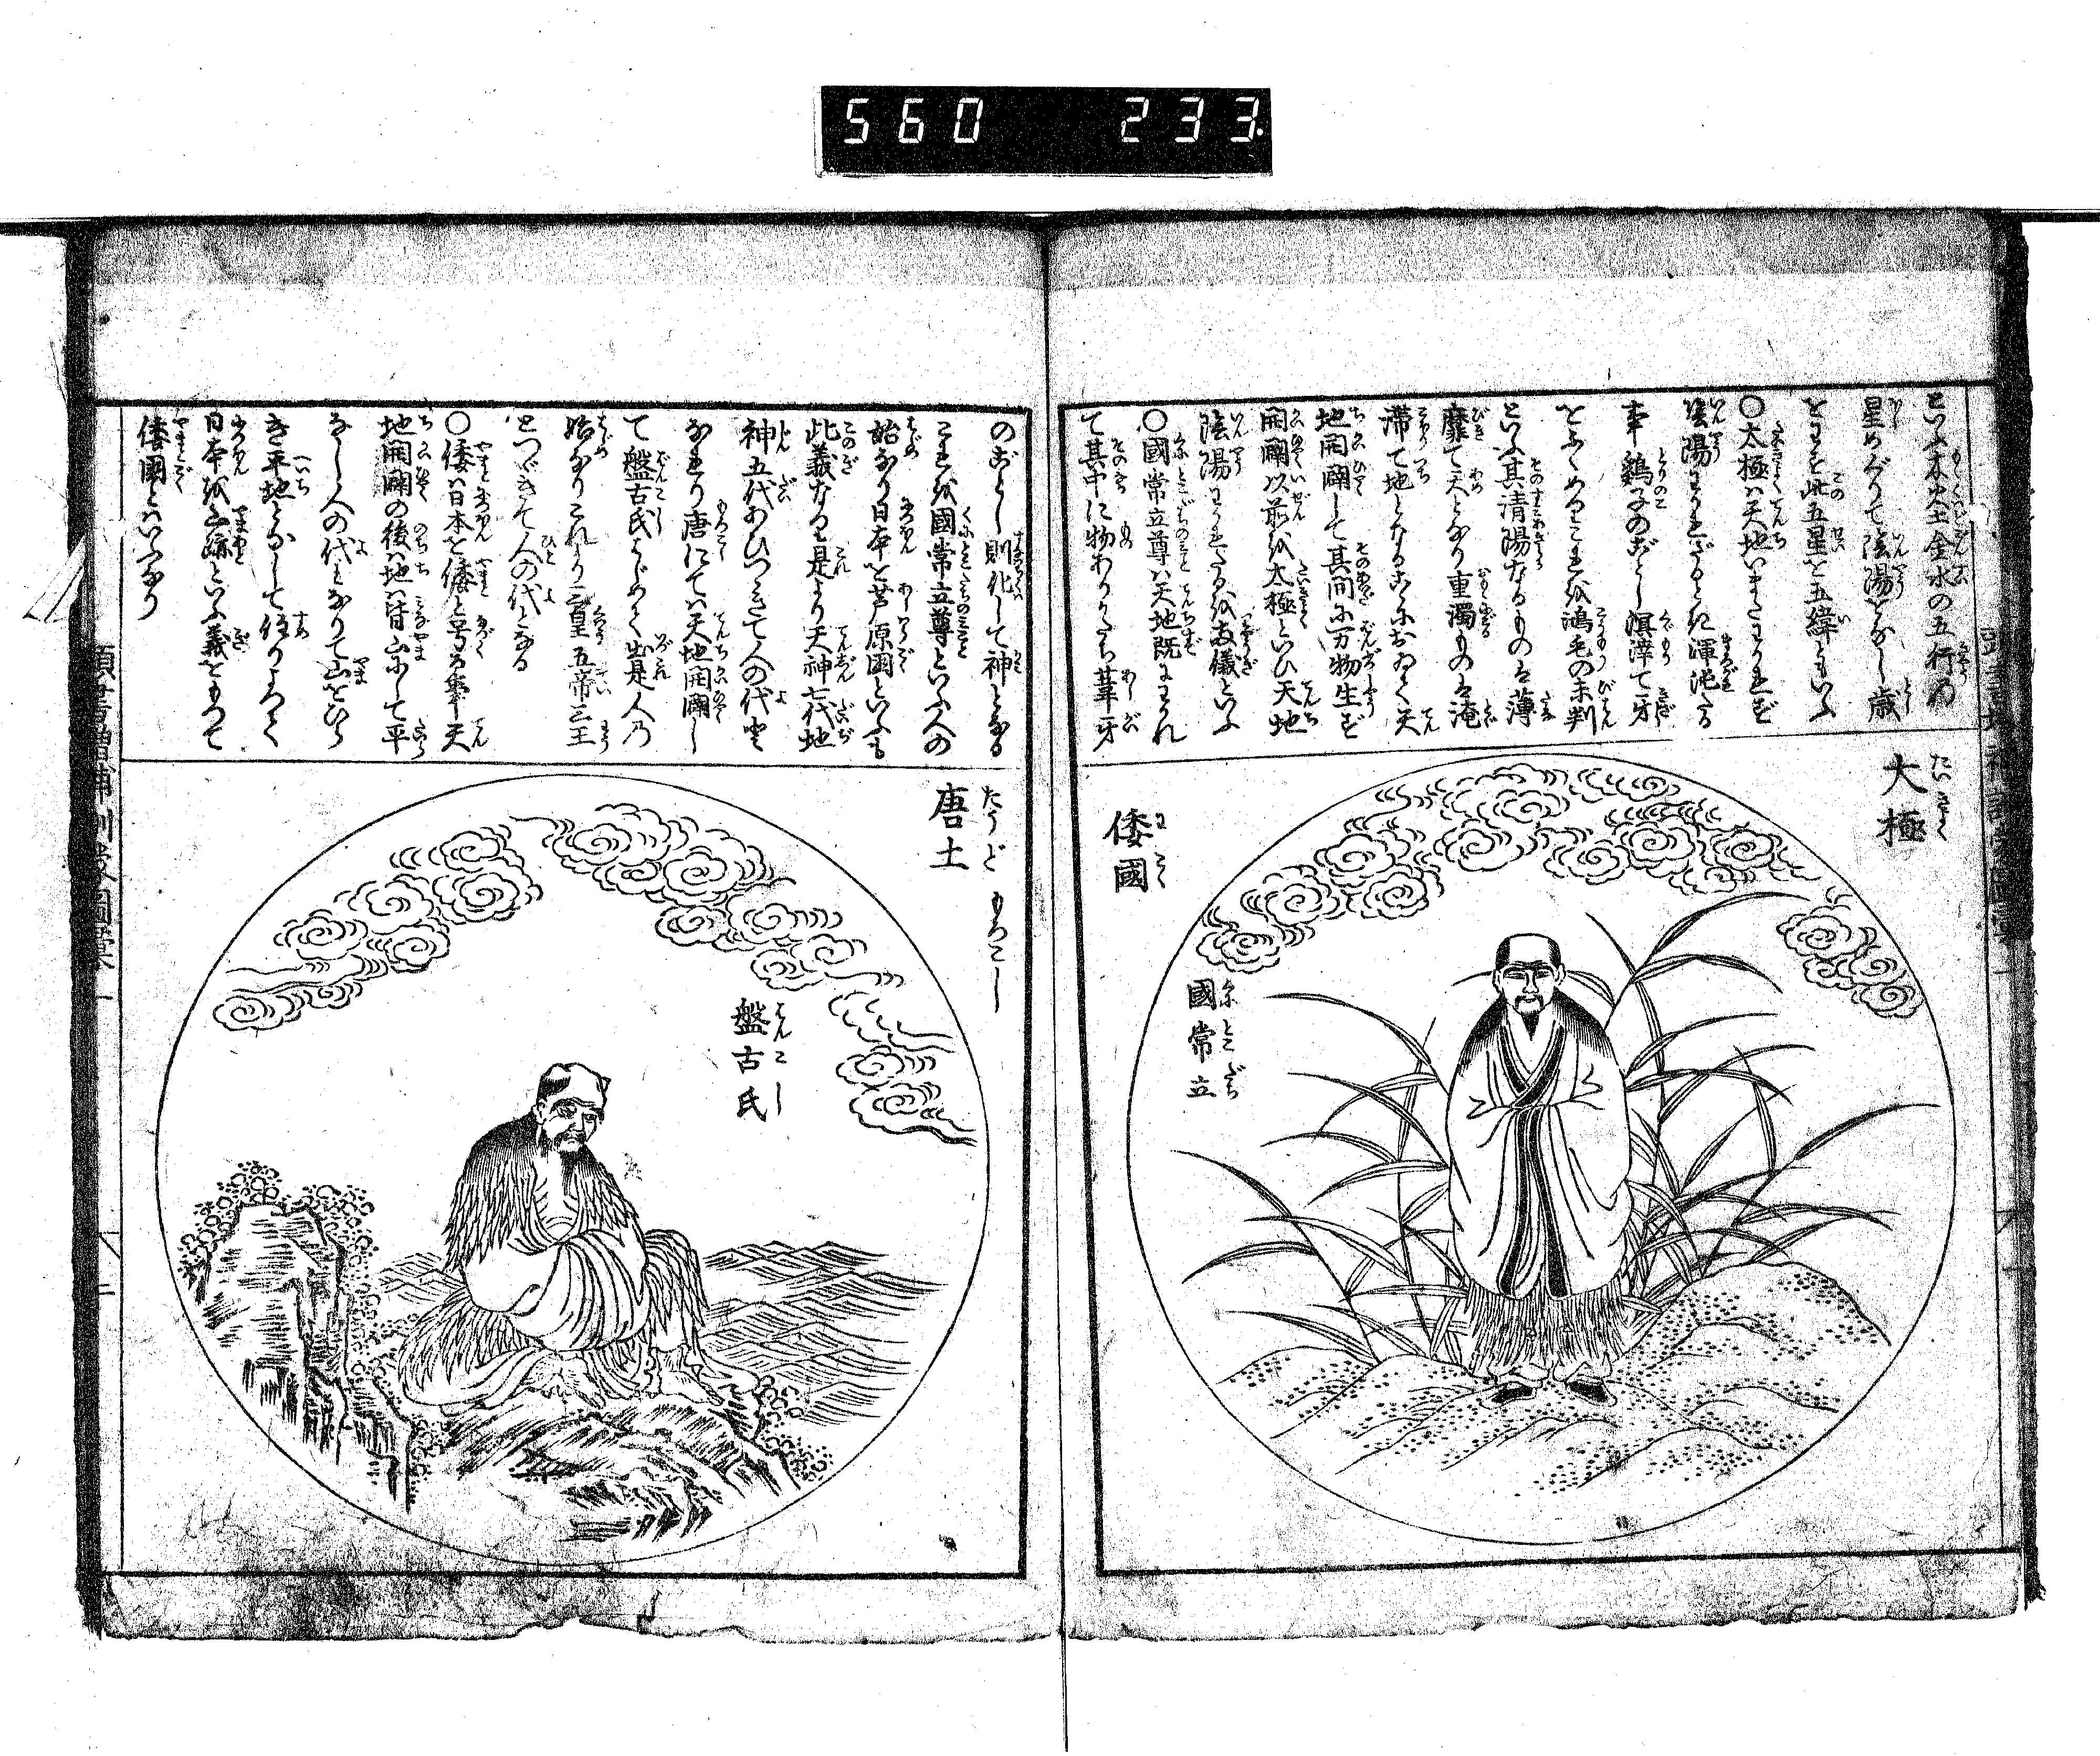 560 233
といふ木火土金水の五行の
星めぐりて陰陽をなし歳
とする此五星を五緯ともいふ
〇太極ハ天地いまだわかれず
陰陽わかれざるとき渾沌たる
事鶏子のごとし溟涬て牙
をふくめるこれを鴻毛の未判
といふ其清陽なるものは薄
靡て天となり重濁ものは淹
滞て地となるこゝにおゐて天
地開闢して其間に万物生ず
開闢以前を太極といひ天地
陰陽わかれたるを両儀といふ
〇國常立尊ハ天地既にわかれ
て其中に物ありかたち葦牙
大極
たいきよく
倭國
わこく
國常立
くにとこだち
のごとし則化して神となる
これを國常立尊といふ人の
始なり日本を芦原国といふも
此義なり是より天神七代地
神五代あひつゞきて人の代と
なれり唐にてハ天地開闢し
て盤古氏はじめて出是人の
始なりこれより三皇五帝三王
とつゞきて人の代となる
〇倭ハ日本を倭と号る事天
地開闢の後ハ地ハ皆山にして平
なし人の代となりて山をひら
き平地となして住りよつて
日本を山跡といふ義をもつて
倭國とハいふなり
唐土
たうど もろこし
盤古氏
はんこし
頭書増補訓蒙圖彙一